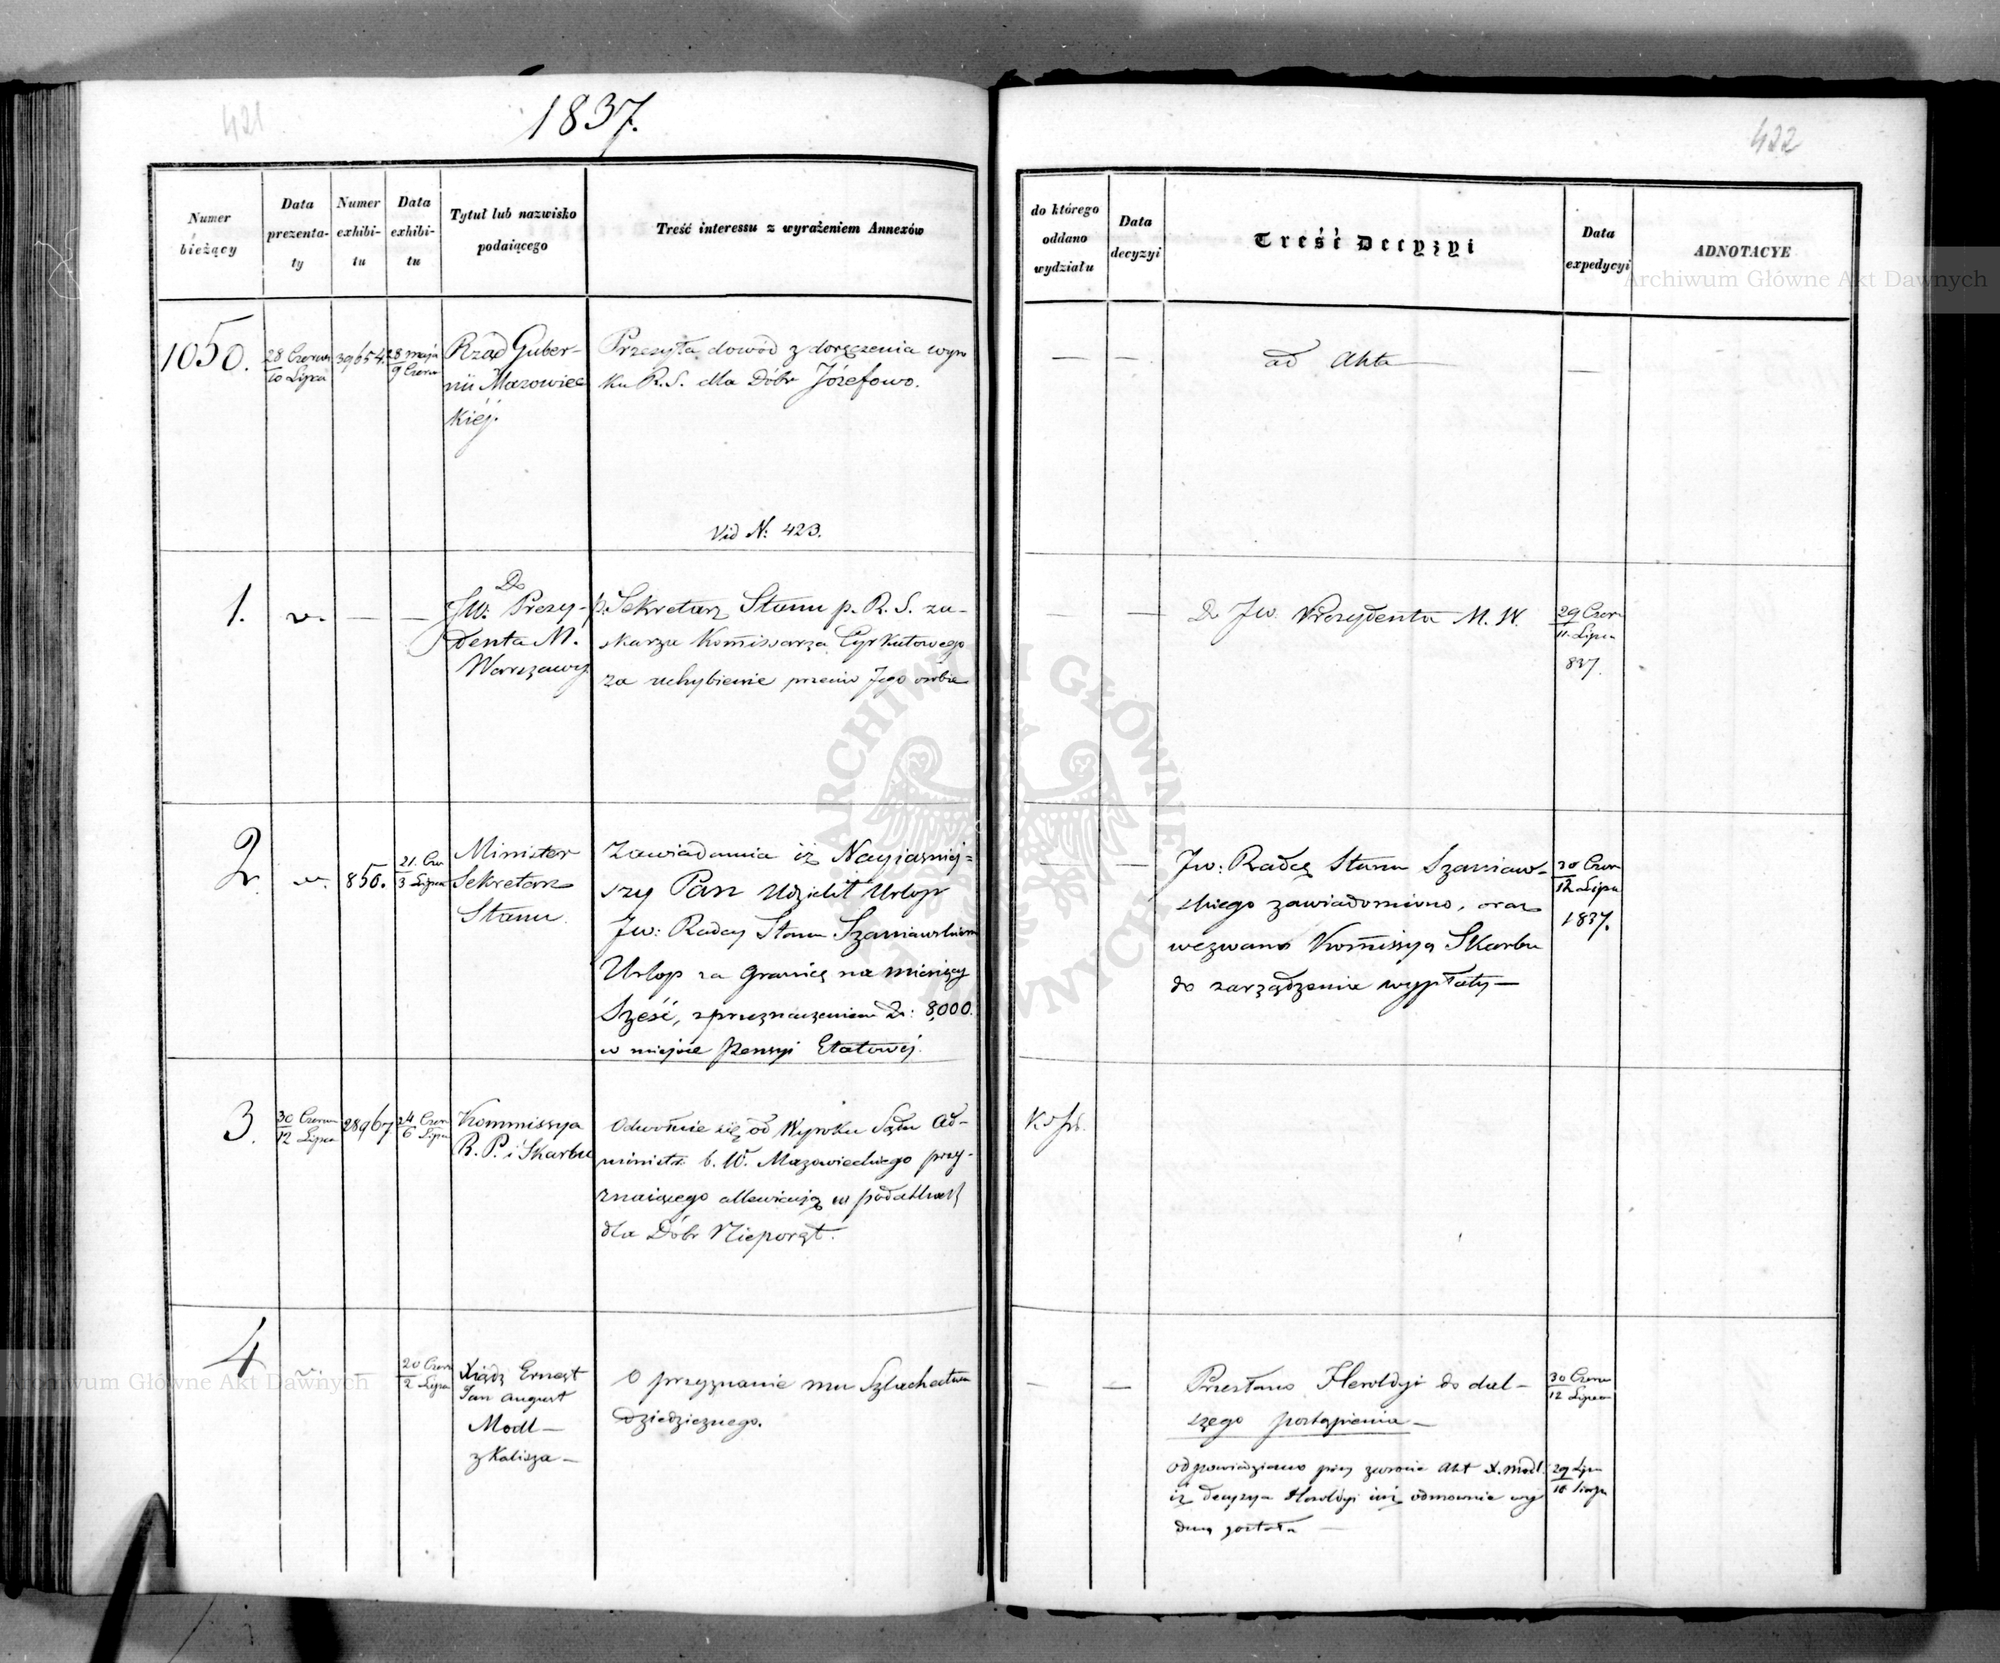 421
1837.
422
Numer
bieżący
Data
prezenta-
ty
Numer
exhibi-
tu
Data
exhibi-
tu
Tytuł lub nazwisko
podaiącego
Treść interessu z wyrażeniem Annexów
do którego
oddano
wydziału
Data
decyzyi
Treść Decyzyi
Data
expedycyi
ADNOTACYE
1050.
28 Czerwca
10 Lipca
39654.
28 maja
9 Czerw
Rząd Guber-
nii Mazowiec
kiéj.
Przesyła dowód z doręczenia wyro
ku R. S. dla Dóbr Józefowo.
Vid N: 423.
— — ad Akta —
1.
v.
—
—
Do
JW. Prezy-
denta M.
Warszawy
p. Sekretarz Stanu p. R. S. za-
skarza Kommissarza Cyrkułowego
za uchybienie przeciw Jego osobie
— — Do JW. Prezydenta M. W.
29 Czerw
11. Lipca
837.
2.
v.
850.
21. Czer
3 Lipca
Minister
Sekretarz
Stanu.
Zawiadamia iż Nayiaśniej-
szy Pan Udzielił Urlop
JW: Radcy Stanu Szaniawskiemu
Urlop za Granicę na miesięcy
Sześć, z przeznaczeniem Zł: 8,000.
w miejsce Pensyi Etatowéj.
— — JW: Radcę Stanu Szaniaw-
skiego zawiadomiono, oraz
wezwano Kommissyą Skarbu
do zarządzenia wypłaty —
30 Czer
12 Lipca
1837.
3.
30 Czerw
12 Lipca
28967
24 Czer
6 Lipca
Kommissya
R. P. i Skarbu
Odwołuie się od Wyroku Sądu Ad-
ministr. b. W. Mazowieckiego przy-
znaiącego allewiacyą w podatkach
dla Dóbr Nieporęt.
4
v.
—
20 Czerw
2 Lipca
Xiądz Ernest
Jan August
Modl —
z Kalisza —
O przyznanie mu Szlachectwa
dziedzicznego.
— — Przesłano Heroldyi do dal-
szego postąpienia —
30 Czerw
12 Lipca
odpowiedziano przy zwrocie Akt X. Modl.
iż decyzya Heroldyi iuż odmownie wy
daną została —
29 Lip
10 Sierp
Archiwum Główne Akt Dawnych
Archiwum Główne Akt Dawnych
ARCHIWUM GŁÓWNE AKT DAWNYCH